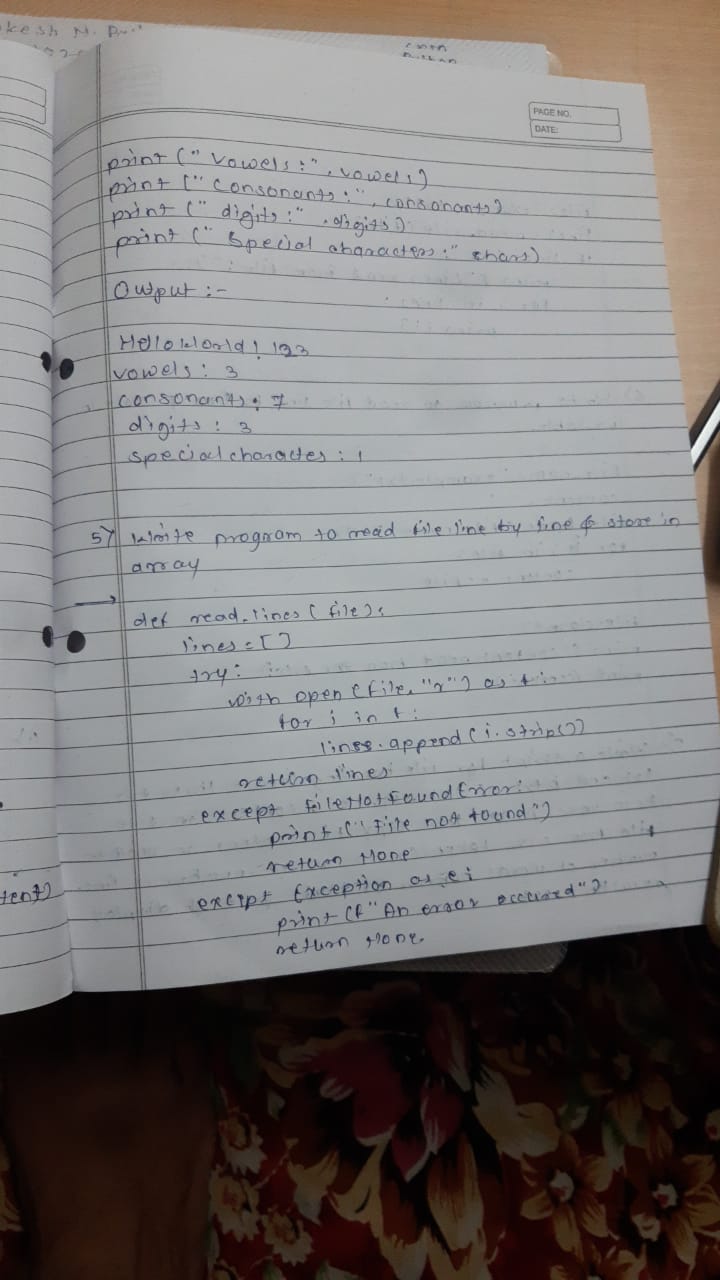 kesh N.
PAGE NO.
DATE:
print (" Vowels :", vowels)
print (" Consonants :", consonants)
print (" digits :", digits)
print (" Special characters :" chars)
Output :-
Hello World ! 123
vowels : 3
consonants : 7
digits : 3
special character : 1
5) Write program to read file line by line & store in
array
→ def read_lines ( file ):
lines = [ ]
try :
with open (file, "r") as f :
for i in f :
lines.append ( i.strip())
return lines
except FileNotFoundError:
print (" File not found")
return None
except Exception as e:
print (f" An error occured")
return None.
tent)